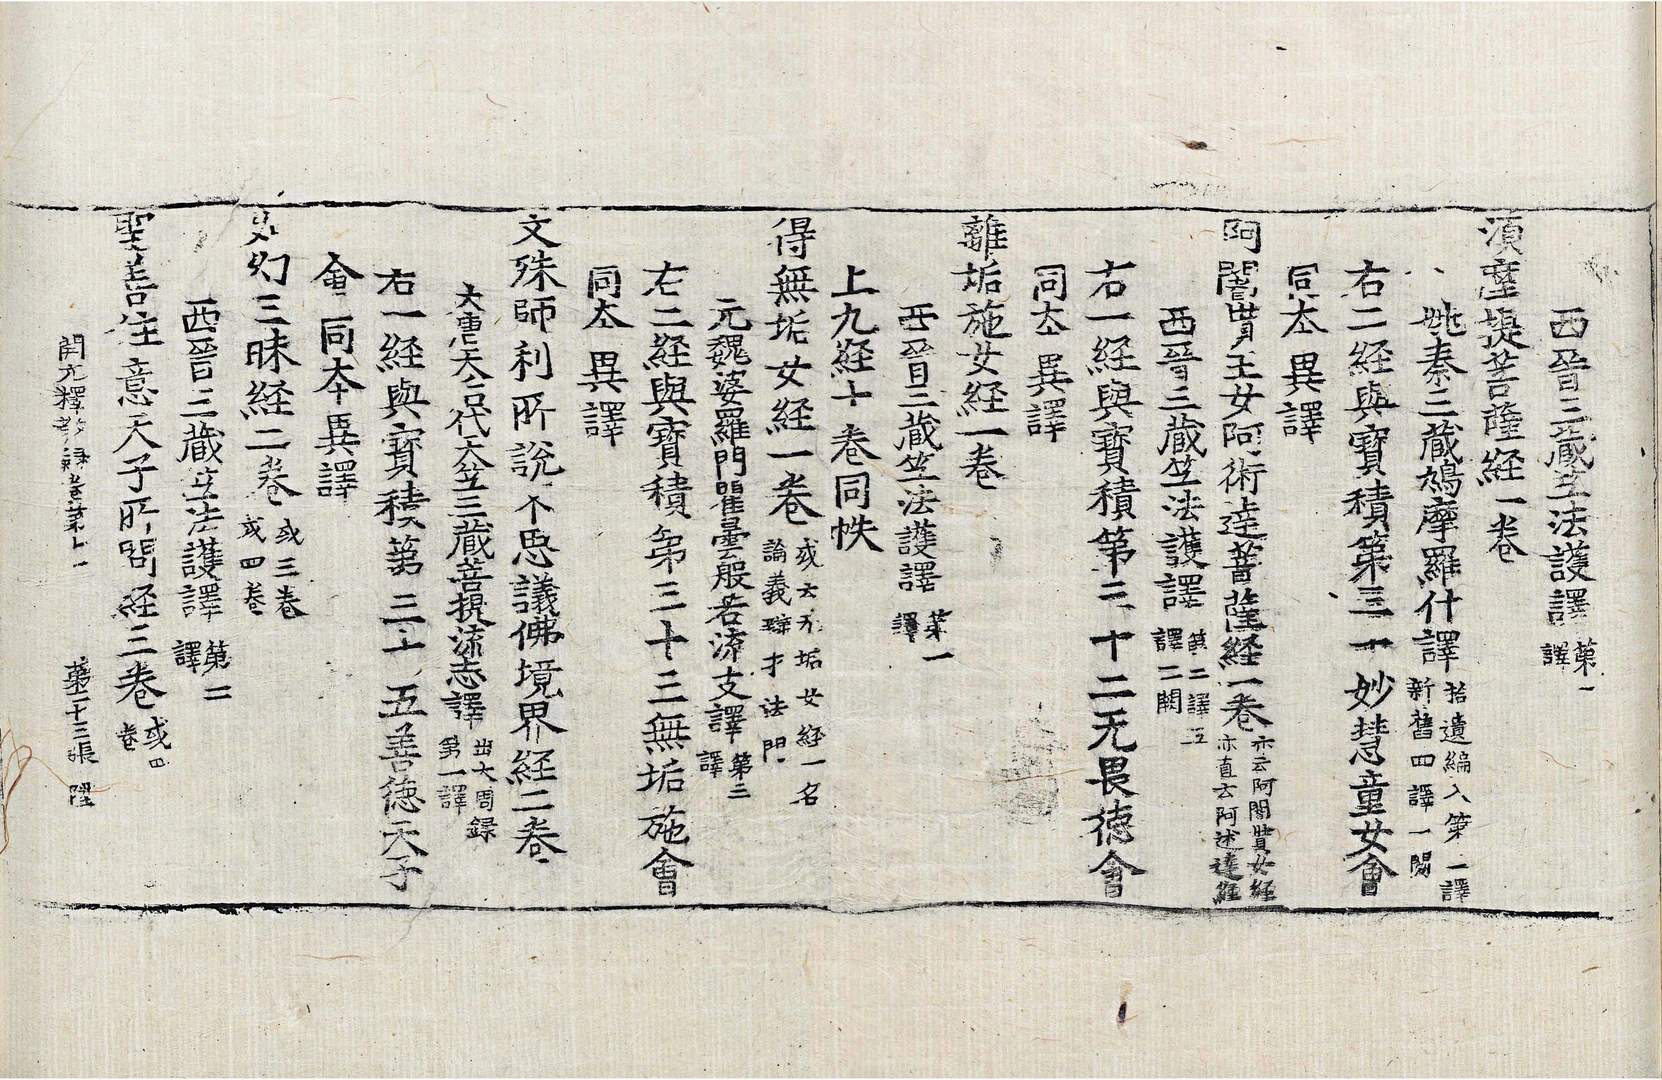 西晉三蔵竺法護譯第一譯
須摩提菩薩経一巻
姚秦三蔵鳩摩羅什譯拾遺編入第一譯新舊四譯一闕
右二経與寶積第三十妙慧童女會
同夲異譯
阿闍貰王女阿術逹菩薩経一巻亦云阿闍貰女経亦直云阿述逹経
西晉三蔵竺法護譯第二譯五譯三闕
右一経與寶積第三十二无畏德會
同夲異譯
離垢施女経一巻
西晉三蔵竺法護譯第一譯
上九経十巻同帙
得無垢女経一巻或云无垢女経一名論義辯才法門
元魏婆羅門瞿曇般若流支譯第三譯
右二経與寶積第三十三無垢施會
同夲異譯
文殊師利所說不思議佛境界経二巻
大唐天后代天竺三蔵菩提流志譯出大周録第一譯
右一経與寶積第三十五善德天子
會同夲異譯
幻三昧経二巻或三巻或四巻
西晉三蔵竺法護譯第二譯
聖善住意天子所問経三巻或四巻
開元釋教録巻第十一　第二十三張　陞